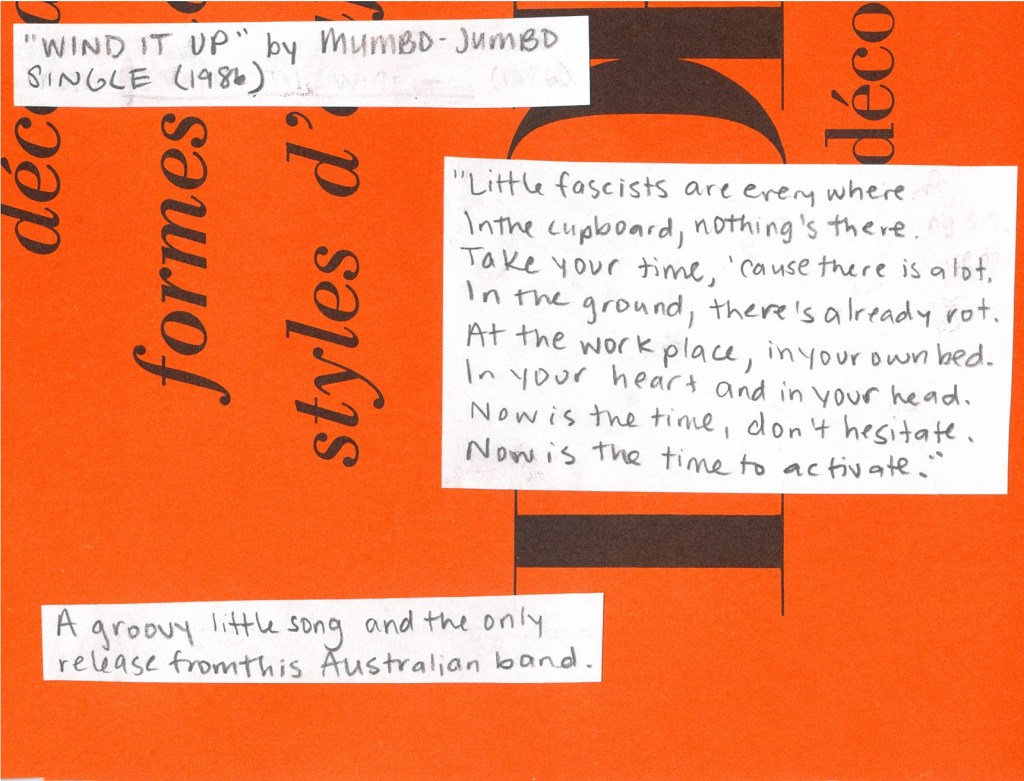 "WIND IT UP" by MUMBO-JUMBO
SINGLE (1986)
déco
formes
styles d'
déco
"Little fascists are everywhere
In the cupboard, nothing's there.
Take your time, 'cause there is a lot.
In the ground, there's already rot.
At the work place, in your own bed.
In your heart and in your head.
Now is the time, don't hesitate.
Now is the time to activate."
A groovy little song and the only
release from this Australian band.